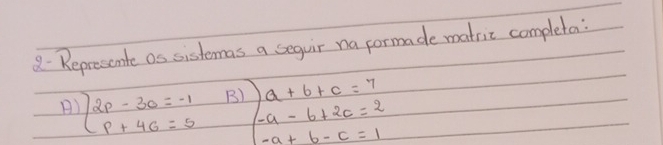 2- Represente os sistemas a seguir na forma de matriz completa:
A) { 2p - 3o = -1
p + 4G = 5
B) { a + b + c = 7
-a - b + 2c = 2
-a + b - c = 1